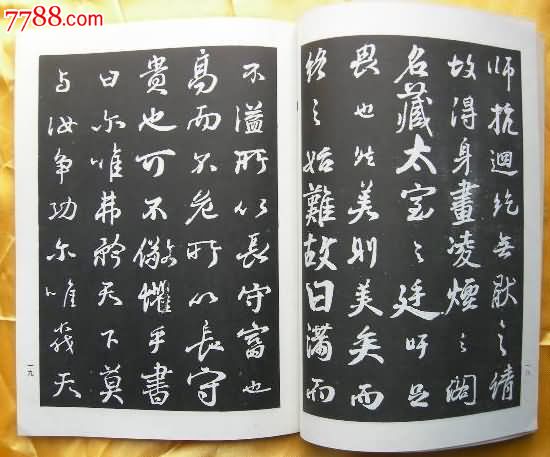 7788.com
师抗迴纥無猒之請
故得身畫凌煙之閣
名藏太室之廷吁足
畏也然美則美矣而
終之始難故曰滿而
一八
不溢所以長守富也
高而不危所以長守
貴也可不儆懼乎書
曰尔唯弗矜天下莫
与汝争功尔唯不伐天
一九